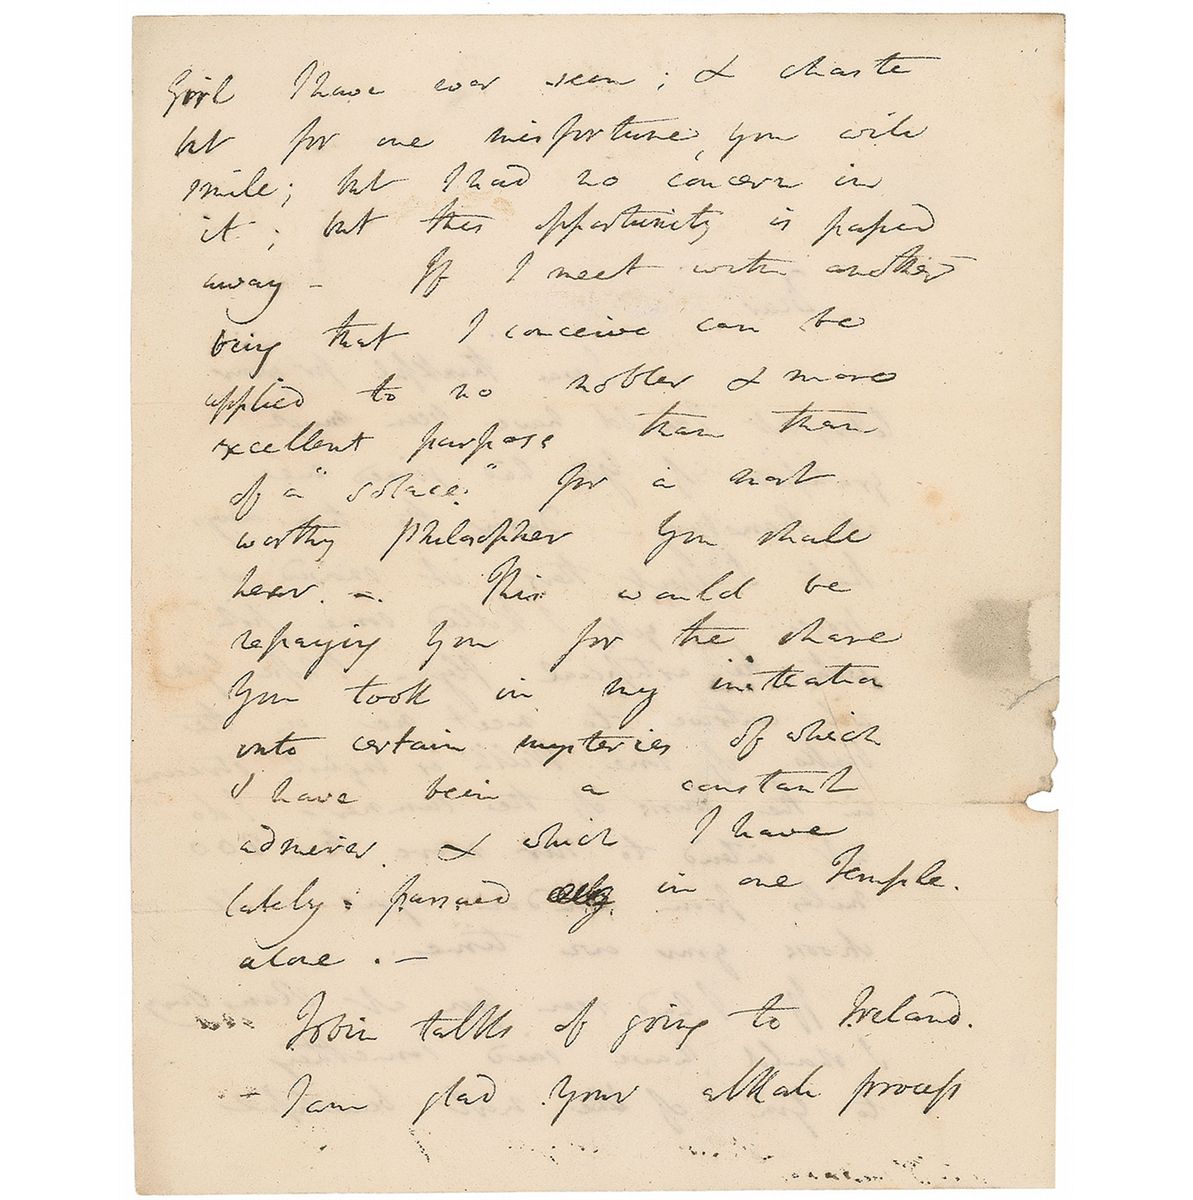 Girl I have ever seen; & chaste
but for one misfortune, you will
smile; but I had no concern in
it; but this opportunity is passed
away – If I meet with another
being that I conceive can be
applied to no nobler & more
excellent purpose than than
of a "solace." for a most
worthy Philosopher You shall
hear. –. This would be
repaying you for the share
You took in my initiation
into certain mysteries of which
I have been a constant
admirer & which I have
lately passed in one Temple.
alone. –
talks of going to Ireland.
– I am glad your alkali process